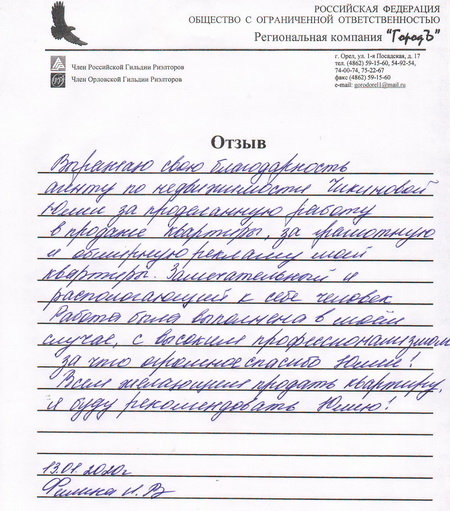 РОССИЙСКАЯ ФЕДЕРАЦИЯ
ОБЩЕСТВО С ОГРАНИЧЕННОЙ ОТВЕТСТВЕННОСТЬЮ
Региональная компания "ГородЪ"
Член Российской Гильдии Риэлторов
Член Орловской Гильдии Риэлторов
г. Орел, ул. 1-я Посадская, д. 17
тел. (4862) 59-15-60, 54-92-54,
74-00-74, 75-22-67
факс (4862) 59-15-60
e-mail: gorodorel1@mail.ru
Отзыв
Выражаю свою благодарность
агенту по недвижимости Чикиновой
Юлии за проделанную работу
в продаже квартиры, за грамотную
и обширную рекламу моей
квартиры. Замечательный и
распологающий к себе человек
Работа была выполнена в моём
случае, с высоким профессионализмом
за что огромное спасибо Юлии!
Всем желающим продать квартиру,
я буду рекомендовать Юлию!
2020г